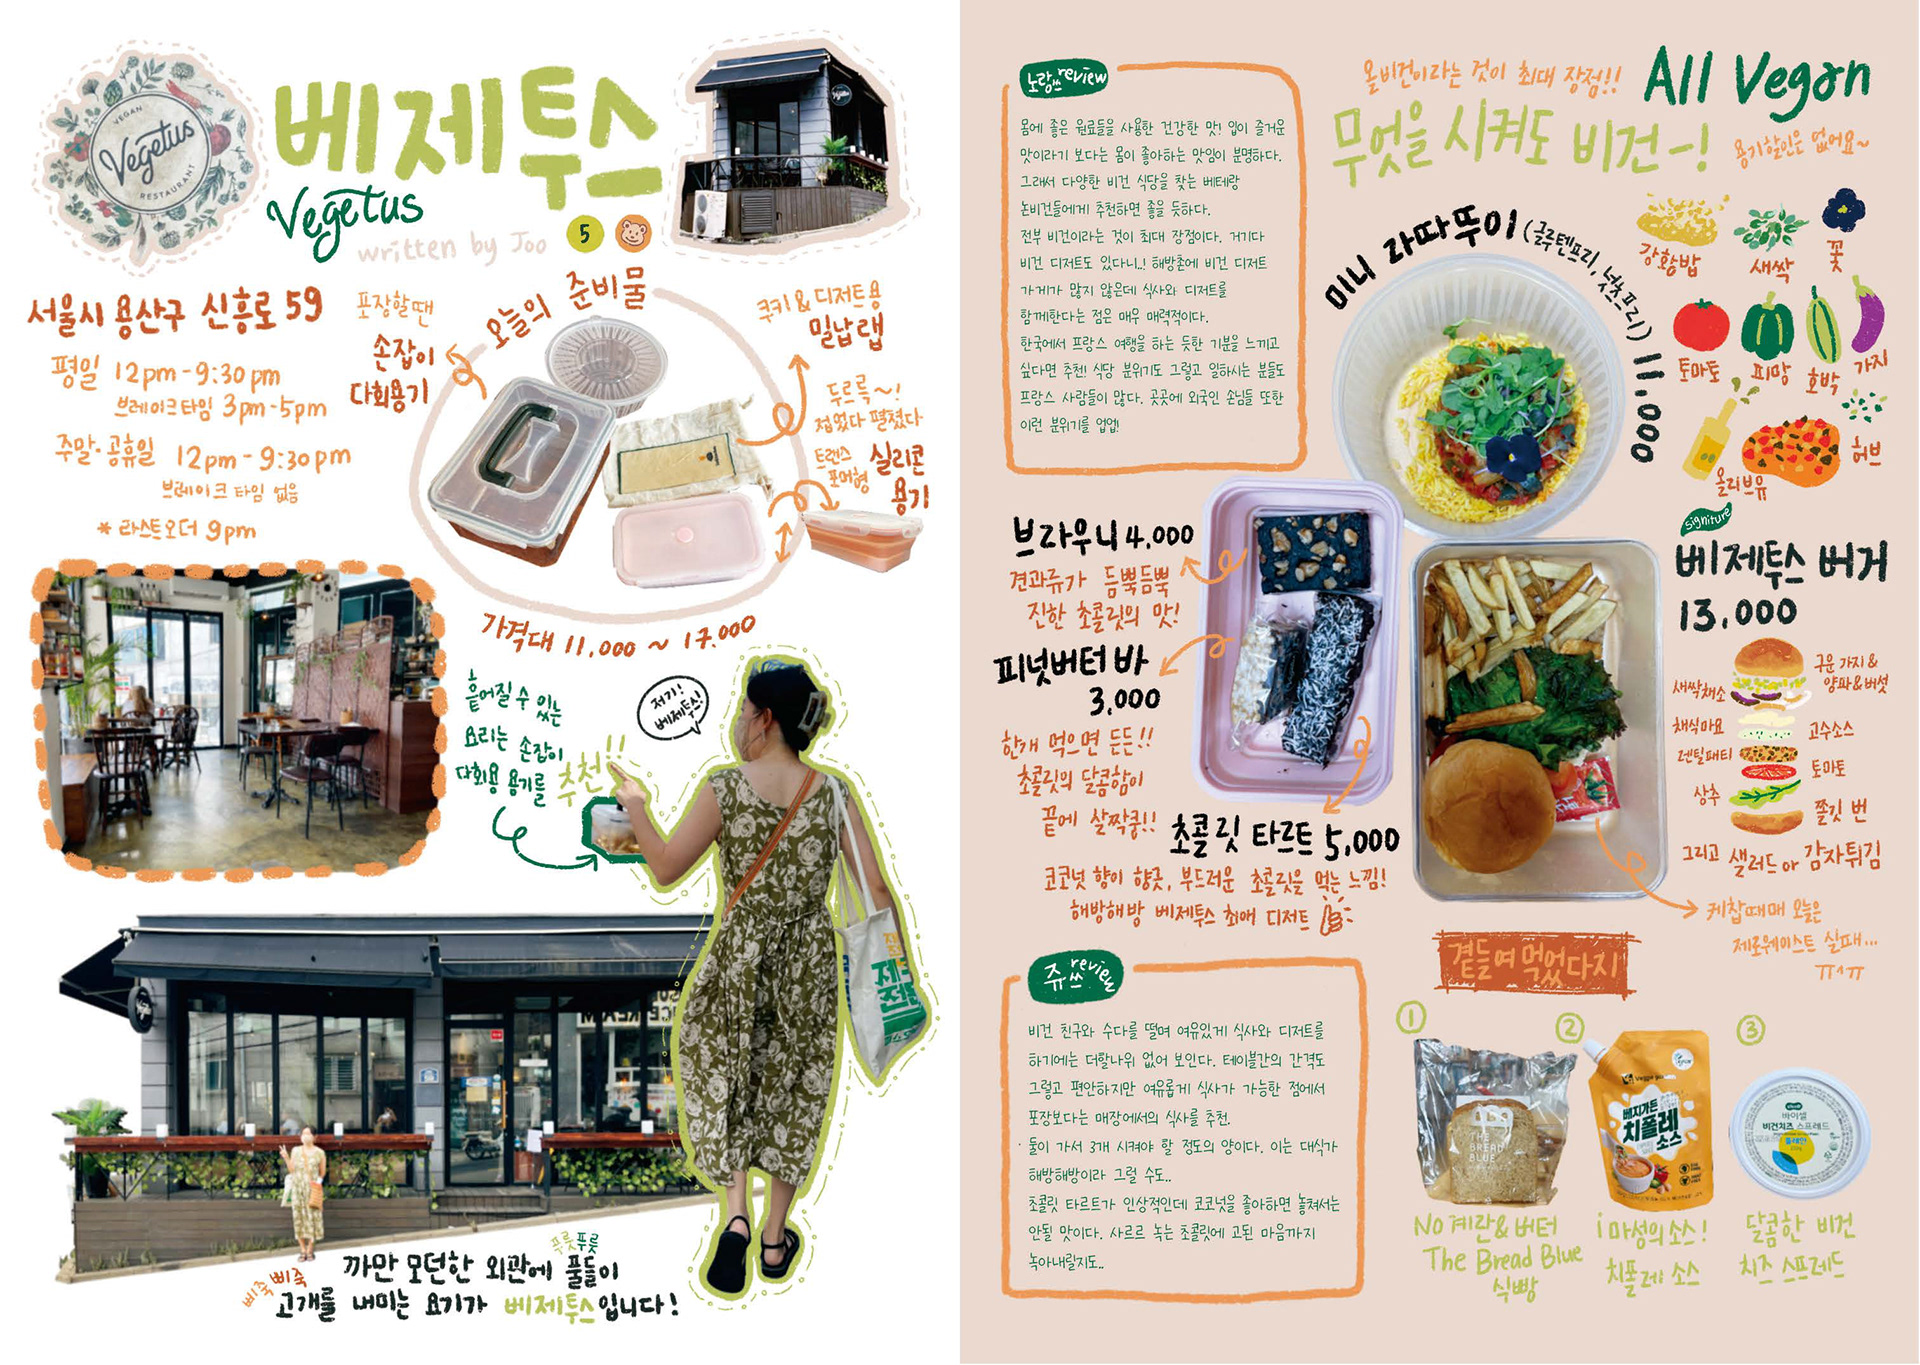 VEGAN
Vegetus
RESTAURANT
베제투스
Vegetus
written by Joo
5
서울시 용산구 신흥로 59
평일 12pm-9:30pm
브레이크타임 3pm-5pm
주말·공휴일 12pm-9:30pm
브레이크 타임 없음
* 라스트오더 9pm
오늘의 준비물
포장할땐
손잡이
다회용기
쿠키 & 디저트용
밀납랩
두르륵~!
접었다 펼쳤다
트랜스
포머형
실리콘
용기
가격대 11,000 ~ 17,000
흩어질 수 있는
요리는 손잡이
다회용 용기를
추천!!
저기!
베제투스!
Vegetus
푸릇푸릇
까만 모던한 외관에 풀들이
삐죽삐죽
고개를 내미는 요기가 베제투스입니다!
노랑쓰 review
몸에 좋은 원료들을 사용한 건강한 맛! 입이 즐거운
맛이라기 보다는 몸이 좋아하는 맛임이 분명하다.
그래서 다양한 비건 식당을 찾는 베테랑
논비건들에게 추천하면 좋을 듯하다.
전부 비건이라는 것이 최대 장점이다. 거기다
비건 디저트도 있다니..! 해방촌에 비건 디저트
가게가 많지 않은데 식사와 디저트를
함께한다는 점은 매우 매력적이다.
한국에서 프랑스 여행을 하는 듯한 기분을 느끼고
싶다면 추천! 식당 분위기도 그렇고 일하시는 분들도
프랑스 사람들이 많다. 곳곳에 외국인 손님들 또한
이런 분위기를 업업!
올비건이라는 것이 최대 장점!!
All Vegan
무엇을 시켜도 비건~!
용기할인은 없어요~
미니 라따뚜이 (글루텐프리, 넛츠프리) 11,000
강황밥
새싹
꽃
토마토
피망
호박
가지
올리브유
허브
브라우니 4,000
견과류가 듬뿍듬뿍
진한 초콜릿의 맛!
피넛버터 바
3,000
한개 먹으면 든든!!
초콜릿의 달콤함이
끝에 살짝쿵!!
초콜릿 타르트 5,000
코코넛 향이 향긋, 부드러운 초콜릿을 먹는 느낌!
해방해방 베제투스 최애 디저트
signiture
베제투스 버거
13,000
구운 가지 &
양파&버섯
새싹채소
채식마요
고수소스
렌틸패티
토마토
상추
쫄깃 번
그리고 샐러드 or 감자튀김
케찹때매 오늘은
제로웨이스트 실패...
ㅠㅅㅠ
쥬쓰 review
비건 친구와 수다를 떨며 여유있게 식사와 디저트를
하기에는 더할나위 없어 보인다. 테이블간의 간격도
그렇고 편안하지만 여유롭게 식사가 가능한 점에서
포장보다는 매장에서의 식사를 추천.
둘이 가서 3개 시켜야 할 정도의 양이다. 이는 대식가
해방해방이라 그럴 수도..
초콜릿 타르트가 인상적인데 코코넛을 좋아하면 놓쳐서는
안될 맛이다. 사르르 녹는 초콜릿에 고된 마음까지
녹아내릴지도..
곁들여 먹었다지
1
2
3
THE
BREAD
BLUE
베지가든
치폴레
소스
바이셀
비건치즈 스프레드
플레인
No 계란&버터
The Bread Blue
식빵
i 마성의 소스!
치폴레 소스
달콤한 비건
치즈 스프레드